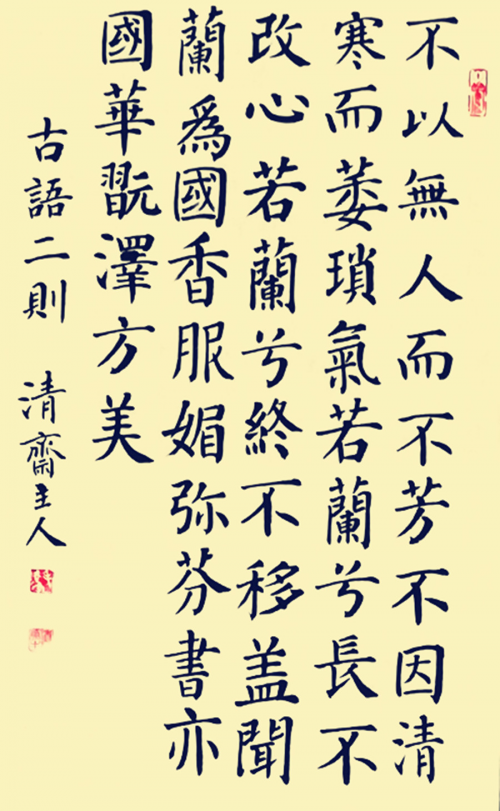 不以無人而不芳不因清
寒而萎瑣氣若蘭兮長不
改心若蘭兮終不移盖聞
蘭爲國香服媚弥芬書亦
國華翫澤方美
古語二則 清齋主人